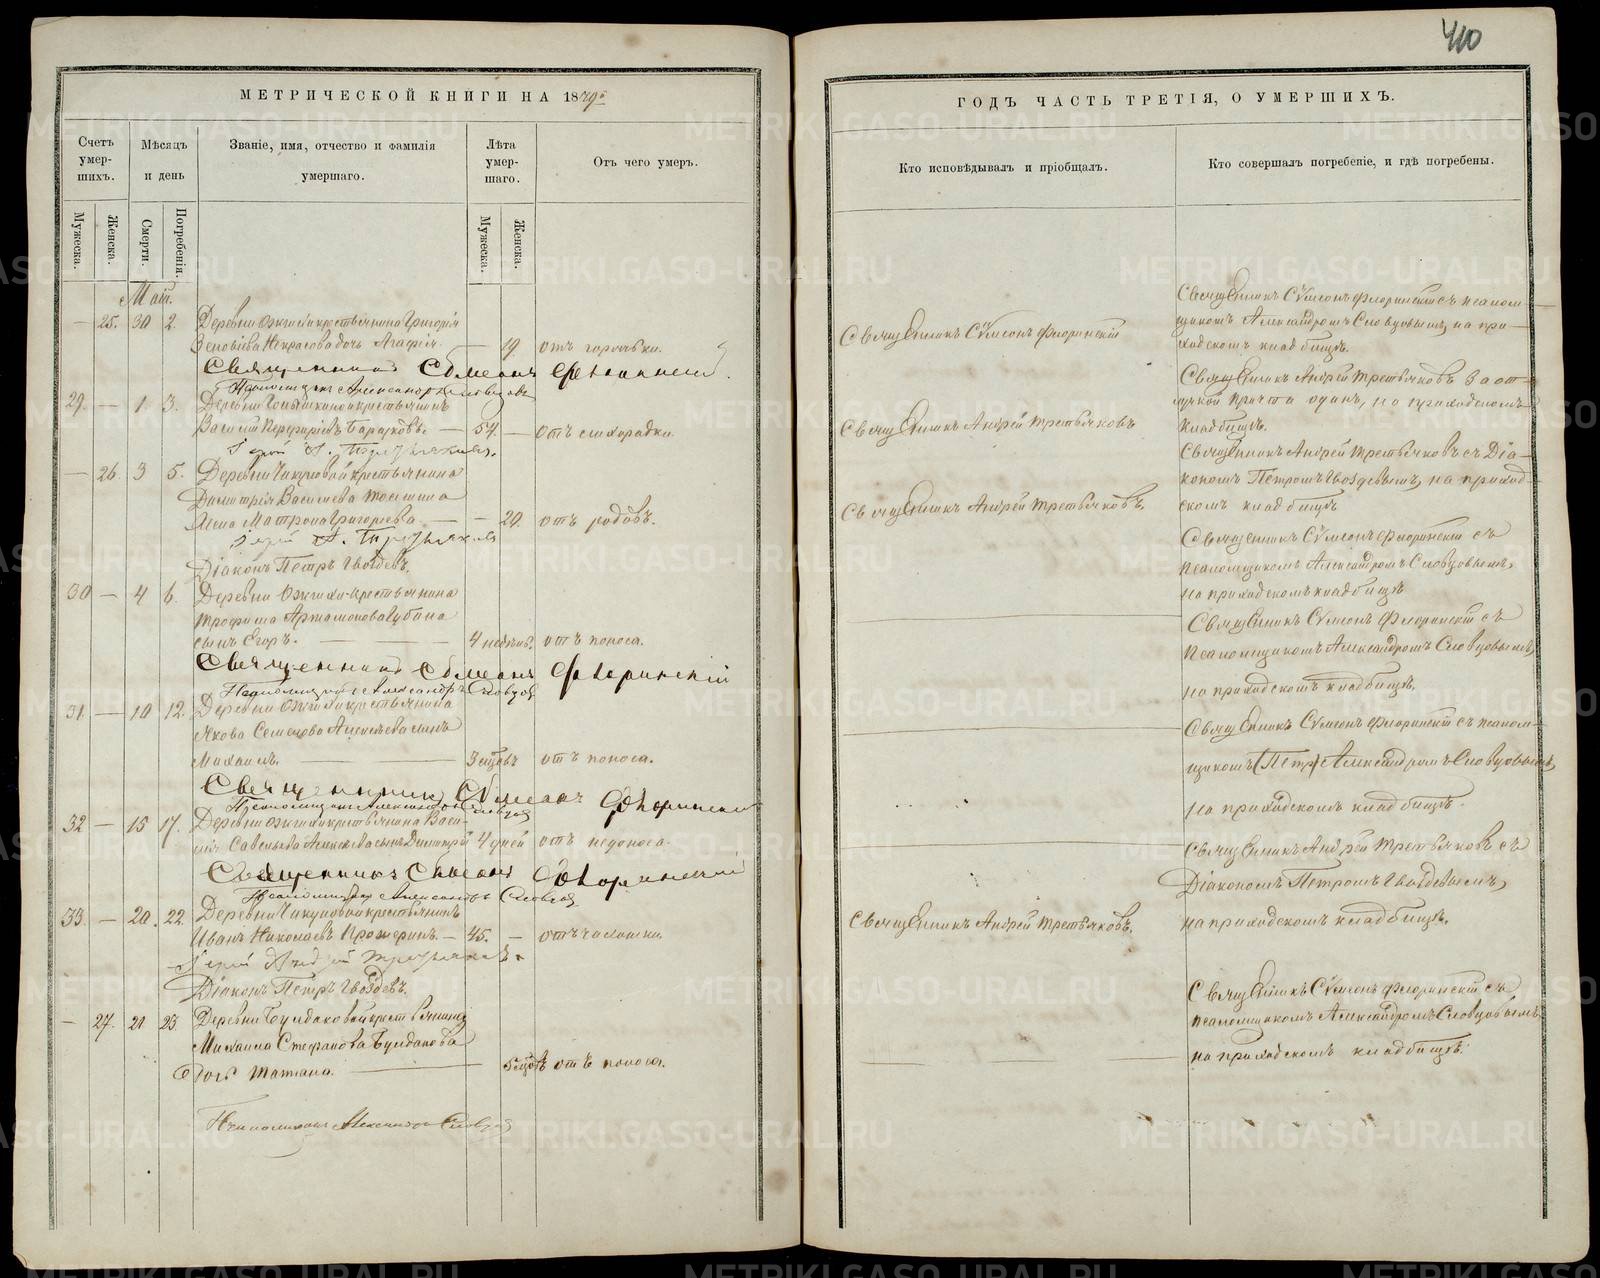 410
МЕТРИЧЕСКОЙ КНИГИ НА 1879й
ГОДЪ ЧАСТЬ ТРЕТІЯ, О УМЕРШИХЪ.
Счетъ умер-шихъ.
Мѣсяцъ и день
Званіе, имя, отчество и фамилія умершаго.
Лѣта умер-шаго.
Отъ чего умеръ.
Кто исповѣдывалъ и пріобщалъ.
Кто совершалъ погребеніе, и гдѣ погребены.
Мужеска.
Женска.
Смерти.
Погребенія.
Мужеска.
Женска.
Май.
— 25. 30 2. Деревни крестьянина Григорія
Некрасова дочь Агафія — 19 отъ горячки.
Священникъ Сѵмеонъ Флоринскій
Священникъ Сѵмеонъ Флоринскій съ псалом-
щикомъ Александромъ Словцовымъ, на при-
ходскомъ кладбищѣ.
Священникъ Сѵмеонъ Флоринскій.
Псаломщикъ Александръ Словцовъ
29. — 1. 3. Деревни крестьянинъ
Василій — 57. — отъ лихорадки.
Священникъ Андрей Третьяковъ
Священникъ Андрей Третьяковъ за от-
лучкой причта одинъ, на приходскомъ
кладбищѣ.
Іерей А. Третьяковъ.
— 26. 3 5. Деревни Чикуновой крестьянина
Димитрія Васильева
жена Матрона Григорьева — — 29. отъ родовъ.
Священникъ Андрей Третьяковъ.
Священникъ Андрей Третьяковъ съ Діа-
кономъ Петромъ Гвоздевымъ, на приход-
скомъ кладбищѣ
Іерей А. Третьяковъ
Діаконъ Петръ Гвоздевъ.
30 — 4 6. Деревни крестьянина
Трофима Артамонова Губина
сынъ Егоръ. — 4 недѣль. отъ поноса.
Священникъ Сѵмеонъ Флоринскій съ
псаломщикомъ Александромъ Словцовымъ,
на приходскомъ кладбищѣ
Священникъ Сѵмеонъ Флоринскій
Псаломщикъ Александръ Словцовъ
31. — 10 12. Деревни крестьянина
Якова Семенова Алексѣева сынъ
Михаилъ. — 3 мѣсцовъ отъ поноса.
Священникъ Сѵмеонъ Флоринскій съ
псаломщикомъ Александромъ Словцовымъ,
на приходскомъ кладбищѣ.
Священникъ Сѵмеонъ Флоринскій
Псаломщикъ Александръ Словцовъ
32 — 15 17. Деревни крестьянина Васи-
лія Савельева Алексѣева сынъ Димитрій 4 дней отъ недоноса.
Священникъ Сѵмеонъ Флоринскій съ псалом-
щикомъ (Петр) Александромъ Словцовымъ,
на приходскомъ кладбищѣ.
Священникъ Сѵмеонъ Флоринскій
Псаломщикъ Александръ Словцовъ
33. — 20. 22. Деревни Чикуновой крестьянинъ
Иванъ Николаевъ — 45. — отъ чахотки.
Священникъ Андрей Третьяковъ.
Священникъ Андрей Третьяковъ съ
Діакономъ Петромъ Гвоздевымъ,
на приходскомъ кладбищѣ.
Іерей Андрей Третьяковъ.
Діаконъ Петръ Гвоздевъ.
— 27. 21 23 Деревни Булдаковой крестьянина
Михаила Стефанова Булдакова
дочь Татіана. — 5 мѣсцъ отъ поноса.
Священникъ Сѵмеонъ Флоринскій съ
псаломщикомъ Александромъ Словцовымъ
на приходскомъ кладбищѣ.
Псаломщикъ Александръ Словцовъ
METRIKI.GASO-URAL.RU